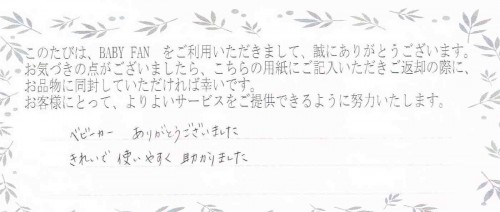 このたびは、BABY FAN をご利用いただきまして、誠にありがとうございます。
お気づきの点がございましたら、こちらの用紙にご記入いただきご返却の際に、
お品物に同封していただければ幸いです。
お客様にとって、よりよいサービスをご提供できるように努力いたします。
ベビーカー ありがとうございました
きれいで 使いやすく 助かりました